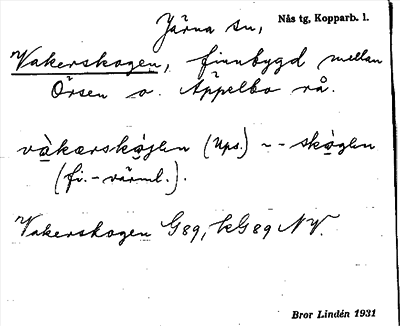 Järna sn, Nås tg, Kopparb. l.
Vakerskogen, finnbygd mellan
Örsen o. Äppelbo rå.
vàkærskójen (Ups.) -- skògen
(fi.-värml.).
Vakerskogen G89, kG89 NV.
Bror Lindén 1931